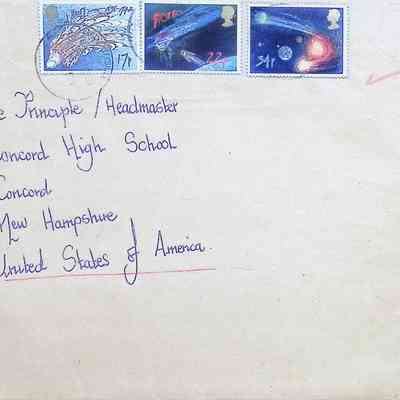 17p 22p 34p
e Principle / Headmaster
oncord High School
Concord
New Hampshire
United States of America.